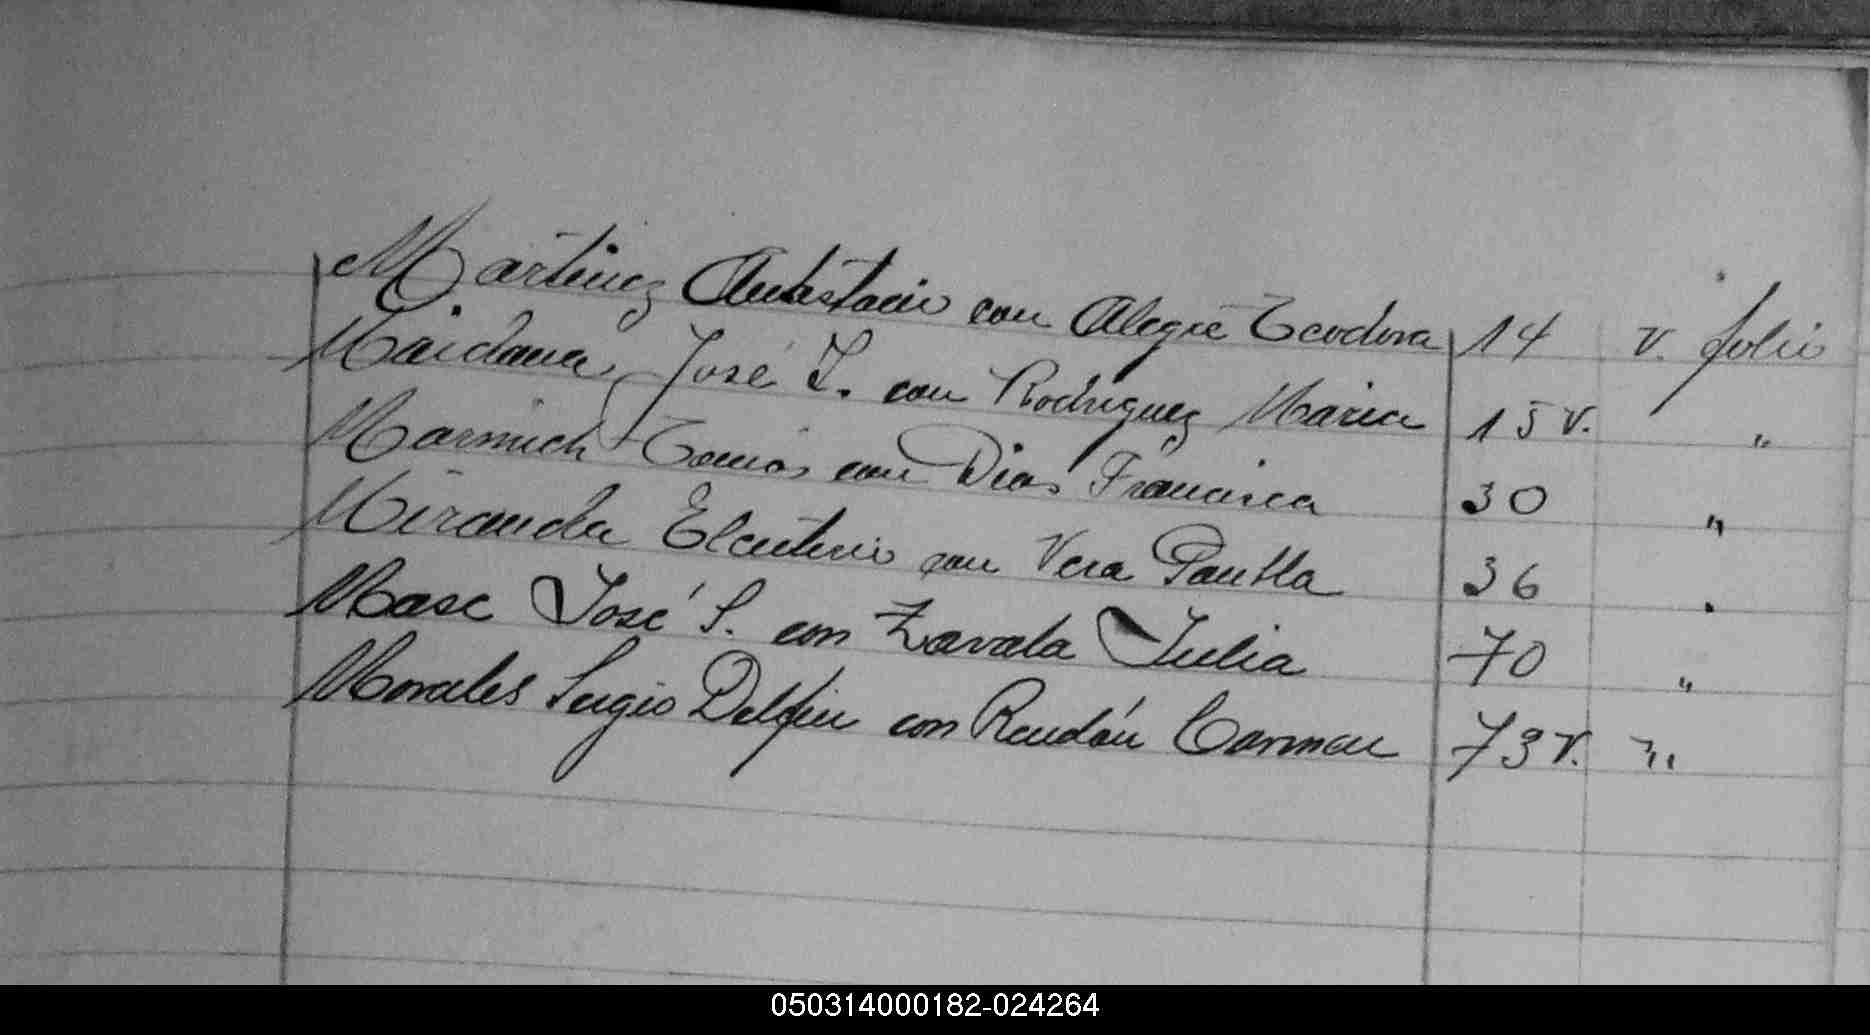 Martinez Anastacio con Alegre Teodora 14 v. folio
Maidana, José L. con Rodriguez Maria 15 v. "
Marmich Tomás con Dias Francisca 30 "
Miranda Eleuterio con Vera Pantla 36 "
Mase José S. con Zavala Julia 70 "
Morales Sergio Delfin con Rendón Carmen 73 v. "
050314000182-024264